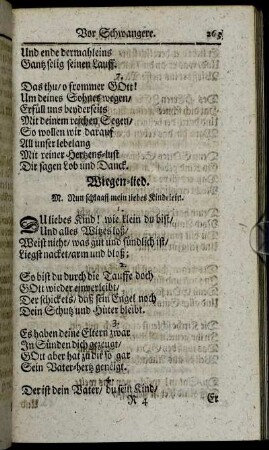 Vor Schwangere. 263
Und ende dermahleins
Gantz selig seinen Lauff.
7.
Das thu/ o frommer GOtt!
Um deines Sohnes wegen/
Erfüll uns beyderseits
Mit deinem reichen Segen/
So wollen wir darauf
All unser lebelang
Mit reiner Hertzens-lust
Dir sagen Lob und Danck.
Wiegen-lied.
M. Nun schlaaff mein liebes Kindelein.
1.
DU liebes Kind! wie klein du bist/
Und alles Witzes loß/
Weist nicht/ was gut und sündlich ist/
Liegst nacket/ arm und bloß;
2.
So bist du durch die Tauffe doch
GOtt wieder einverleibt/
Der schickets/ daß sein Engel noch
Dein Schutz und Hüter bleibt.
3.
Es haben deine Eltern zwar
In Sünden dich gezeugt/
GOtt aber hat zu dir so gar
Sein Vater-hertz geneigt.
4.
Der ist dein Vater/ du sein Kind/
R 4 Er